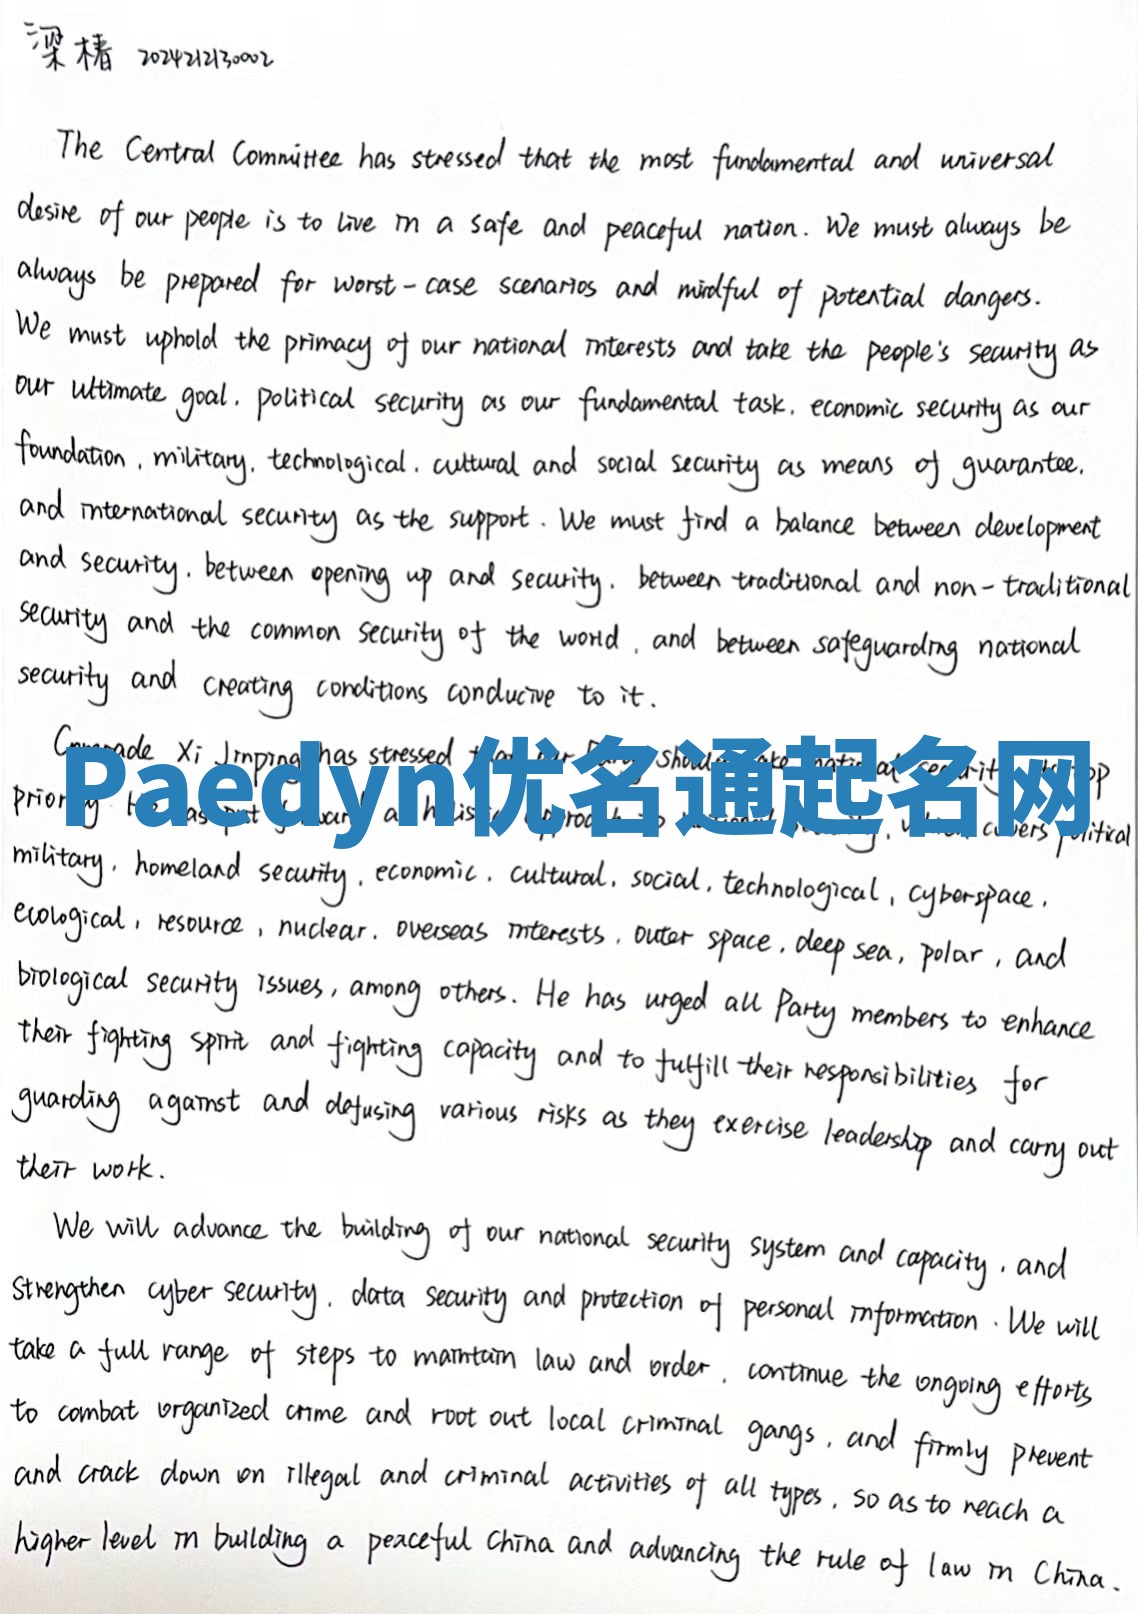 梁椿 2024212130002
The Central Committee has stressed that the most fundamental and universal
desire of our people is to live in a safe and peaceful nation. We must always be
always be prepared for worst-case scenarios and mindful of potential dangers.
We must uphold the primacy of our national interests and take the people's security as
our ultimate goal, political security as our fundamental task, economic security as our
foundation, military, technological, cultural and social security as means of guarantee,
and international security as the support. We must find a balance between development
and security, between opening up and security, between traditional and non-traditional
security and the common security of the world, and between safeguarding national
security and creating conditions conducive to it.
Comrade Xi Jinping has stressed should national security top
Paedyn优名通起名网
priority. He has put forward a holistic approach to national security, which covers political
military, homeland security, economic, cultural, social, technological, cyberspace,
ecological, resource, nuclear, overseas interests, outer space, deep sea, polar, and
biological security issues, among others. He has urged all Party members to enhance
their fighting spirit and fighting capacity and to fulfill their responsibilities for
guarding against and defusing various risks as they exercise leadership and carry out
their work.
We will advance the building of our national security system and capacity, and
strengthen cyber security, data security and protection of personal information. We will
take a full range of steps to maintain law and order, continue the ongoing efforts
to combat organized crime and root out local criminal gangs, and firmly prevent
and crack down on illegal and criminal activities of all types, so as to reach a
higher level in building a peaceful China and advancing the rule of law in China.